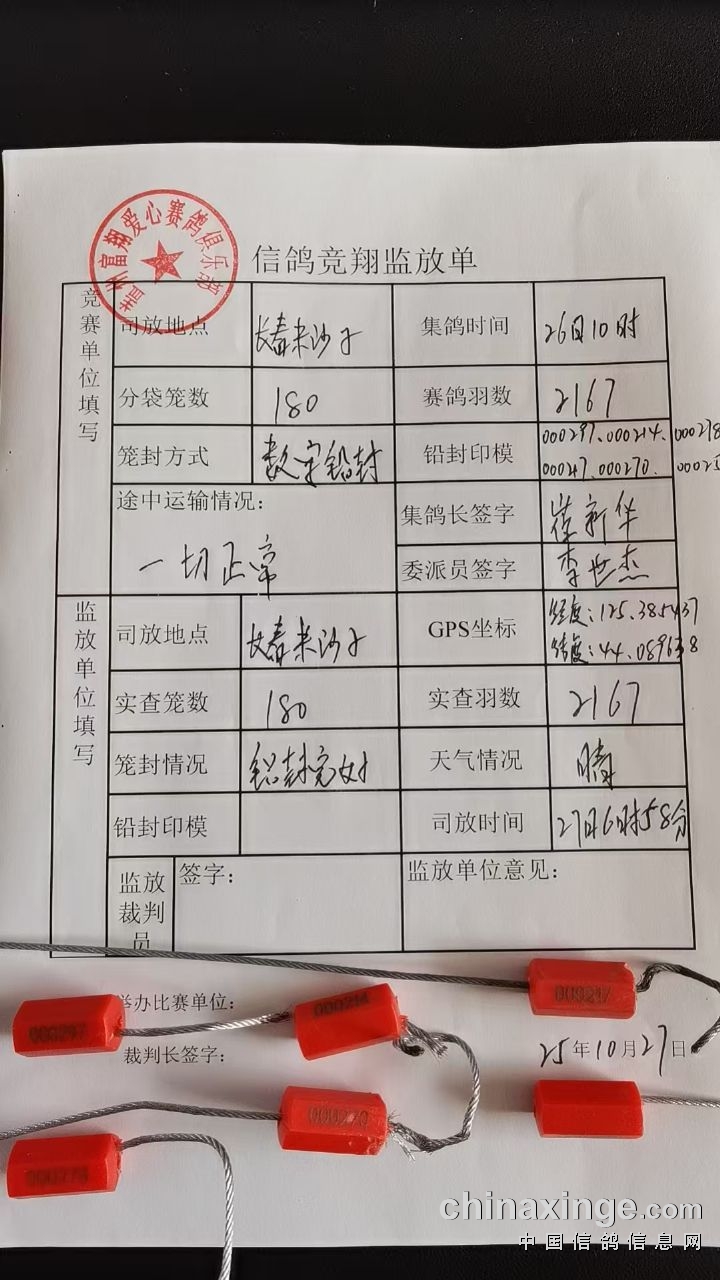 富翔爱心赛鸽俱乐部
信鸽竞翔监放单
竞赛单位填写
司放地点 长春米沙子 集鸽时间 26日10时
分袋笼数 180 赛鸽羽数 2167
笼封方式 数字铅封 铅封印模 000297、000214、000278
000247、000270、
途中运输情况：
一切正常
集鸽长签字 崔新华
委派员签字 李世杰
监放单位填写
司放地点 长春米沙子 GPS坐标 经度：125.385437
纬度：44.089638
实查笼数 180 实查羽数 2167
笼封情况 铅封完好 天气情况 晴
铅封印模 司放时间 27日6时58分
监放裁判员 签字： 监放单位意见：
举办比赛单位：
裁判长签字：
25年10月27日
000297
000214
000217
000270
000278
chinaxinge.com
中国信鸽信息网